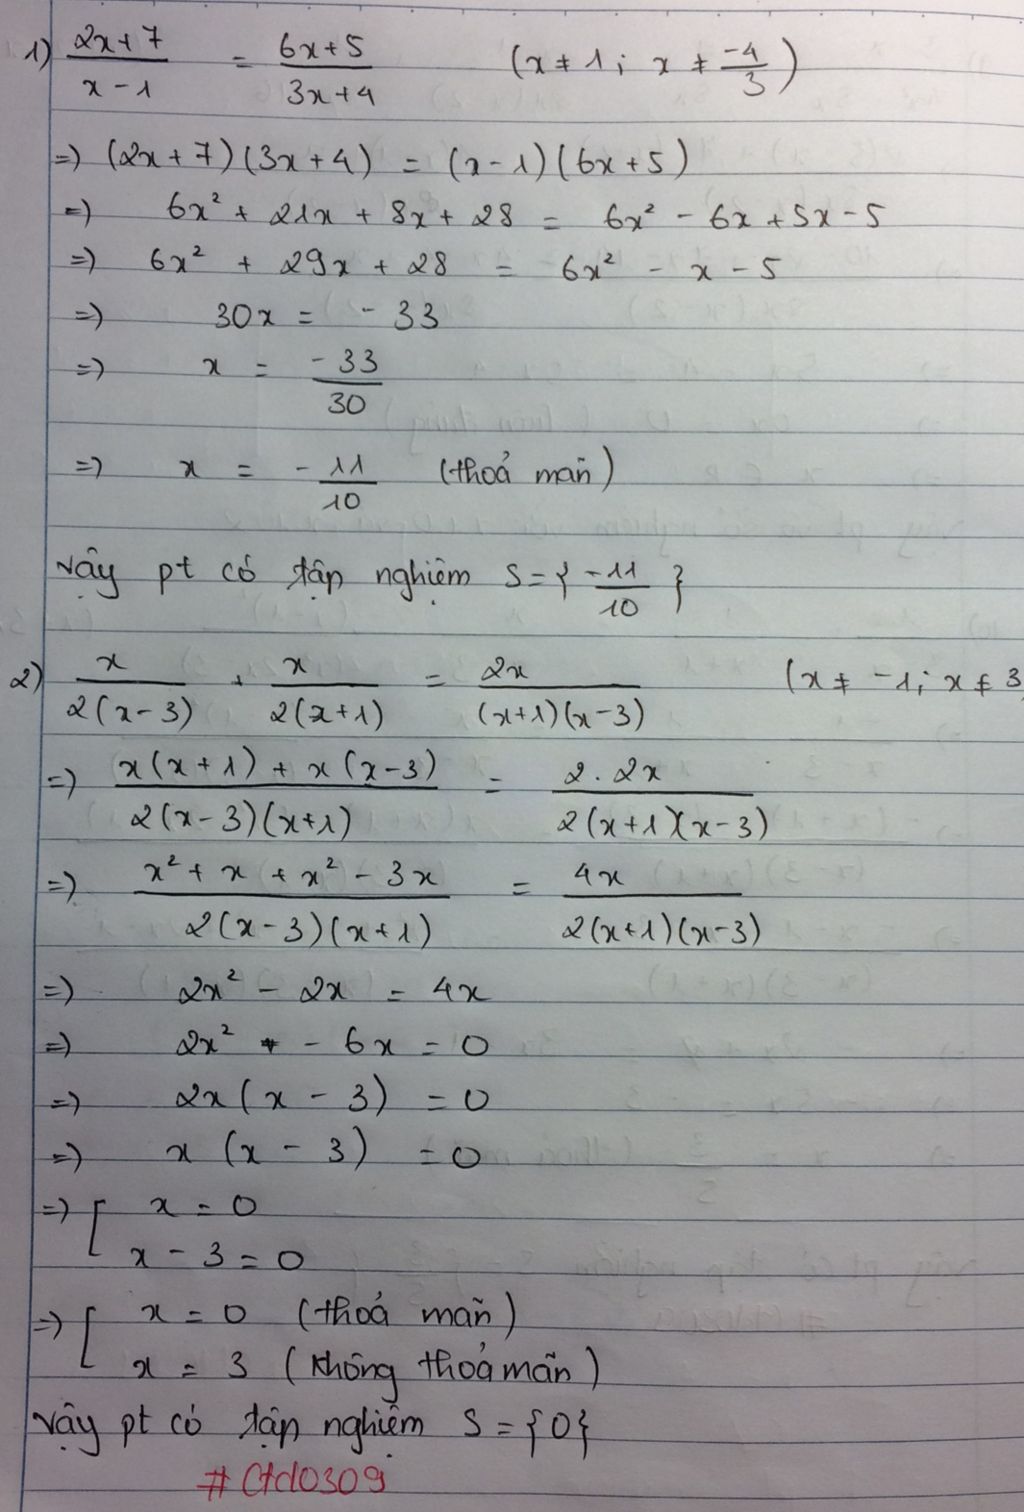 1) (2x+7)/(x-1) = (6x+5)/(3x+4) (x ≠ 1; x ≠ -4/3)
=> (2x+7)(3x+4) = (x-1)(6x+5)
=> 6x² + 21x + 8x + 28 = 6x² - 6x + 5x - 5
=> 6x² + 29x + 28 = 6x² - x - 5
=> 30x = -33
=> x = -33/30
=> x = -11/10 (thoả mãn)
Vậy pt có tập nghiệm S = {-11/10}
2) x/(2(x-3)) + x/(2(x+1)) = 2x/((x+1)(x-3)) (x ≠ -1; x ≠ 3
=> (x(x+1) + x(x-3))/(2(x-3)(x+1)) = (2.2x)/(2(x+1)(x-3))
=> (x² + x + x² - 3x)/(2(x-3)(x+1)) = 4x/(2(x+1)(x-3))
=> 2x² - 2x = 4x
=> 2x² - 6x = 0
=> 2x(x-3) = 0
=> x(x-3) = 0
=> [ x = 0
x - 3 = 0
=> [ x = 0 (thoả mãn)
x = 3 (không thoả mãn)
Vậy pt có tập nghiệm S = {0}